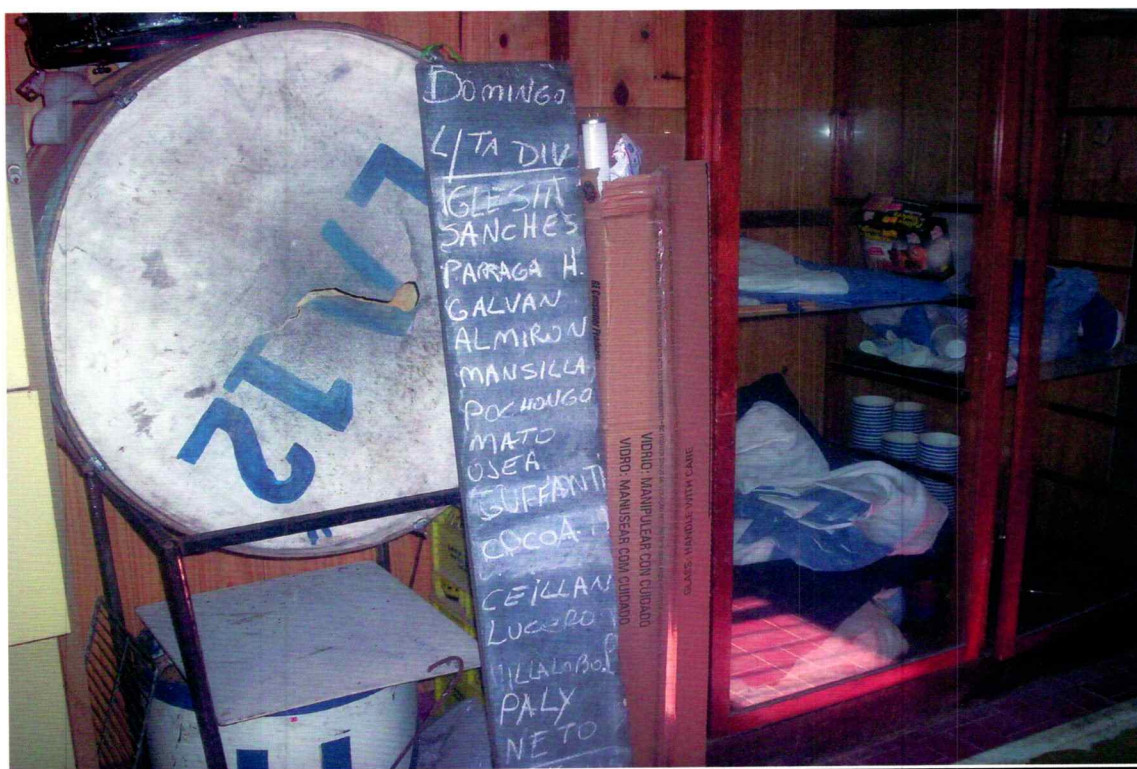 DOMINGO
4/TA DIV
IGLESIA
SANCHES
PARRAGA H.
GALVAN
ALMIRON
MANSILLA
POCHONGO
MATO
OJEA
GUFFANTI
COCOA
CEILLAN
LUCERO
VILLALOBOS
PALY
NETO
VIDRIO: MANIPULEAR CON CUIDADO
VIDRO: MANUSEAR COM CUIDADO
GLASS: HANDLE WITH CARE
12